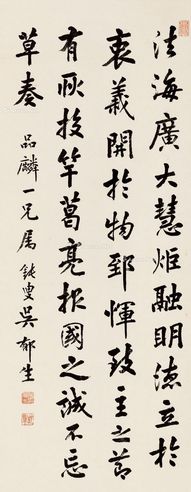 法海廣大慧炬融明德立於
衷義開於物郅惲致主之節
有耿投竿葛亮抱國之誠不忘
草奏
品麟一兄属 鈍叟吳郁生